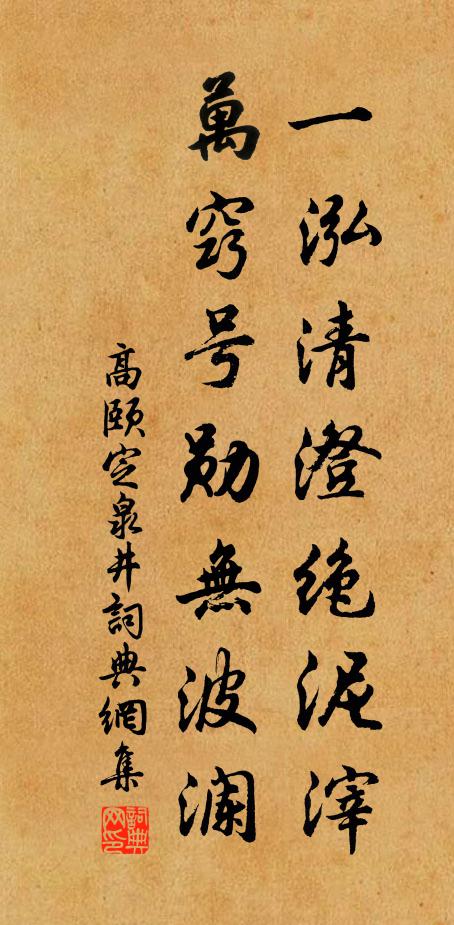 一泓清澄绝泥滓
萬窍号勋無波澜
高頤定泉井詞典網集
詞典网印